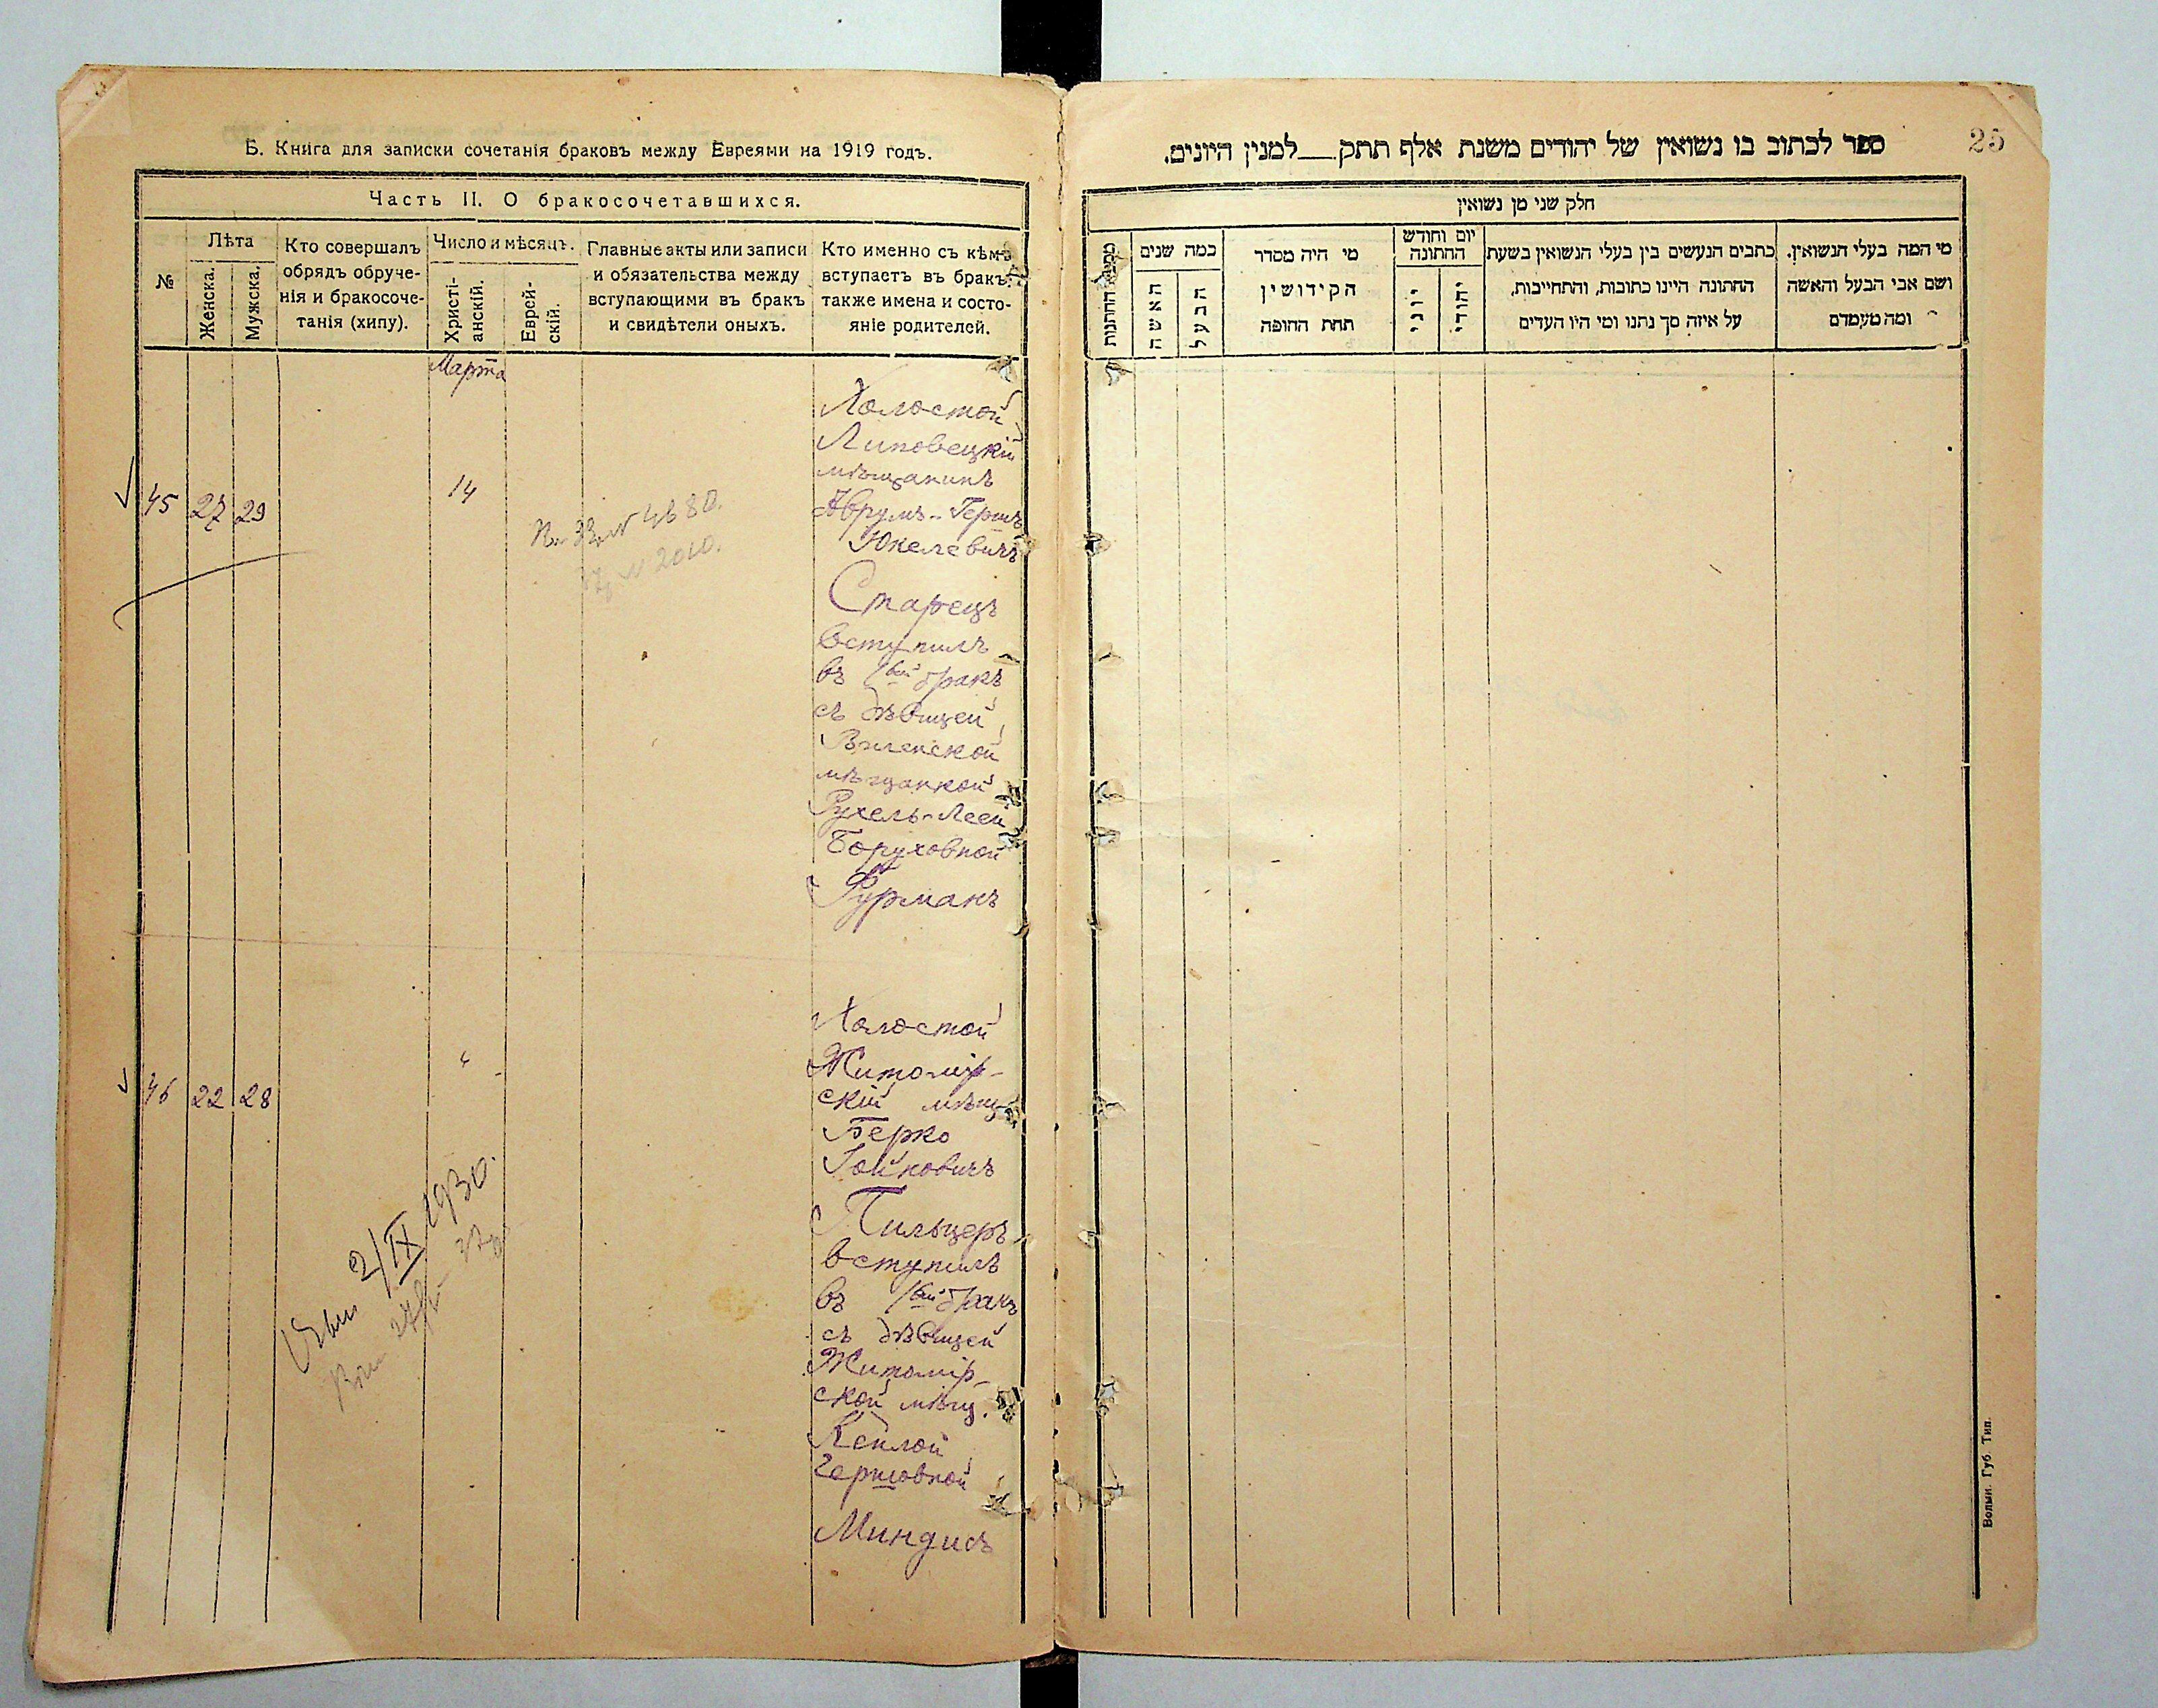 Б. Книга для записки сочетанія браковъ между Евреями на 1919 годъ.
Часть II. О бракосочетавшихся.
№
Лѣта
Женска.
Мужска.
Кто совершалъ
обрядъ обруче-
нія и бракосоче-
танія (хипу).
Число и мѣсяцъ.
Христі-
анскій.
Еврей-
скій.
Главные акты или записи
и обязательства между
вступающими въ бракъ
и свидѣтели оныхъ.
Кто именно съ кѣмъ
вступаетъ въ бракъ,
также имена и состо-
яніе родителей.
Марта
45 27 29
14
Холостой
Липовецкій
мѣщанинъ
Аврумъ-Гершъ
Юкелевичъ
Старецъ
вступилъ
въ 1вый бракъ
съ дѣвицей
Виленской
мѣщанкой
Рухель-Леей
Боруховной
Фурманъ
№ 4680.
№ 2010.
46 22 28
"
Холостой
Житомір-
скій мѣщ.
Берко
Гойновичъ
Пильцеръ
вступилъ
въ 1вый бракъ
съ дѣвицей
Житомір-
ской мѣщ.
Кейлой
Гершовной
Миндисъ
2/IX 1930.
25
ספר לכתוב בו נשואין של יהודים משנת אלף תתק למנין היונים.
חלק שני מן נשואין
מי המה בעלי הנשואין.
ושם אבי הבעל והאשה
ומה מעמדם
כתבים הנעשים בין בעלי הנשואין בשעת
החתונה היינו כתובות, והתחייבות,
על איזה סך נתנו ומי היו העדים
יום וחודש
החתונה
יהודי
יוני
מי היה מסדר
הקידושין
תחת החופה
כמה שנים
הבעל
האשה
החתונות
Волын. Губ. Тип.